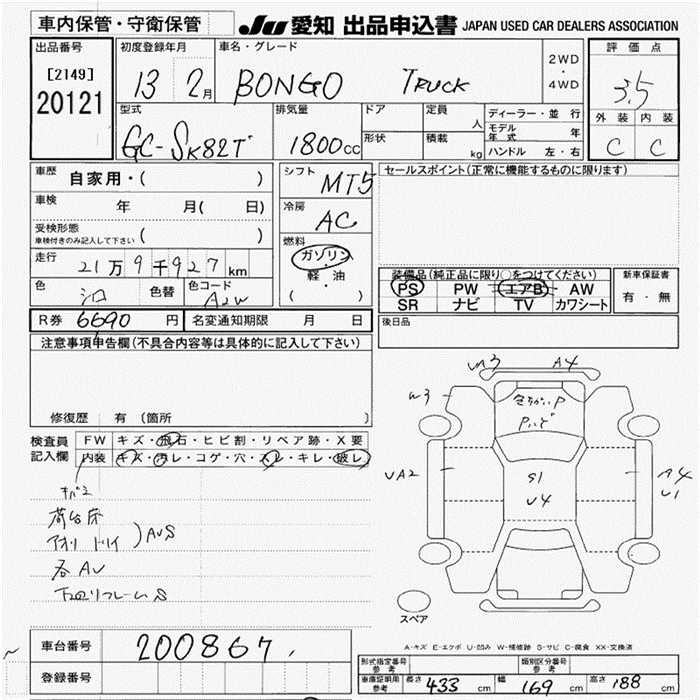 車内保管・守衛保管
JU 愛知 出品申込書 JAPAN USED CAR DEALERS ASSOCIATION
出品番号
[2149]
20121
初度登録年月
13 2月
車名・グレード
BONGO TRUCK
2WD
・
4WD
評価点
3.5
外装 内装
C C
型式
GC-SK82T
排気量
1800cc
ドア
形状
定員
人
積載
kg
ディーラー・並行
モデル年式 年
ハンドル 左・右
車歴 自家用・( )
車検 年 月( 日)
受検形態
車検付きのみ記入して下さい ( )
走行 21万9千927km
色 シロ 色替 色コード A2W
シフト MT5
冷房 AC
燃料
ガソリン
軽・油
( )
セールスポイント(正常に機能するものに限ります)
装備品(純正品に限り○をつけてください)
PS PW エアB AW
SR ナビ TV カワシート
新車保証書
有・無
R券 6690円 名変通知期限 月 日
後日品
注意事項申告欄(不具合内容等は具体的に記入して下さい)
修復歴 有(箇所 )
検査員
記入欄
FW キズ・飛石・ヒビ割・リペア跡・X要
内装 キズ・汚レ・コゲ・穴・スレ・キレ・破レ
荷台床
アオリ AUS
各AU
下回リフレームS
UA3 A4
W3
UA2
S1
U4
A4
U1
スペア
A-キズ E-エクボ U-凹み W-補修跡 S-サビ C-腐食 XX-交換済
車台番号 200867
登録番号
形式指定番号 参考
類別区分番号 参考
車庫証明用 参考 長さ 433 cm 幅 169 cm 高さ 188 cm